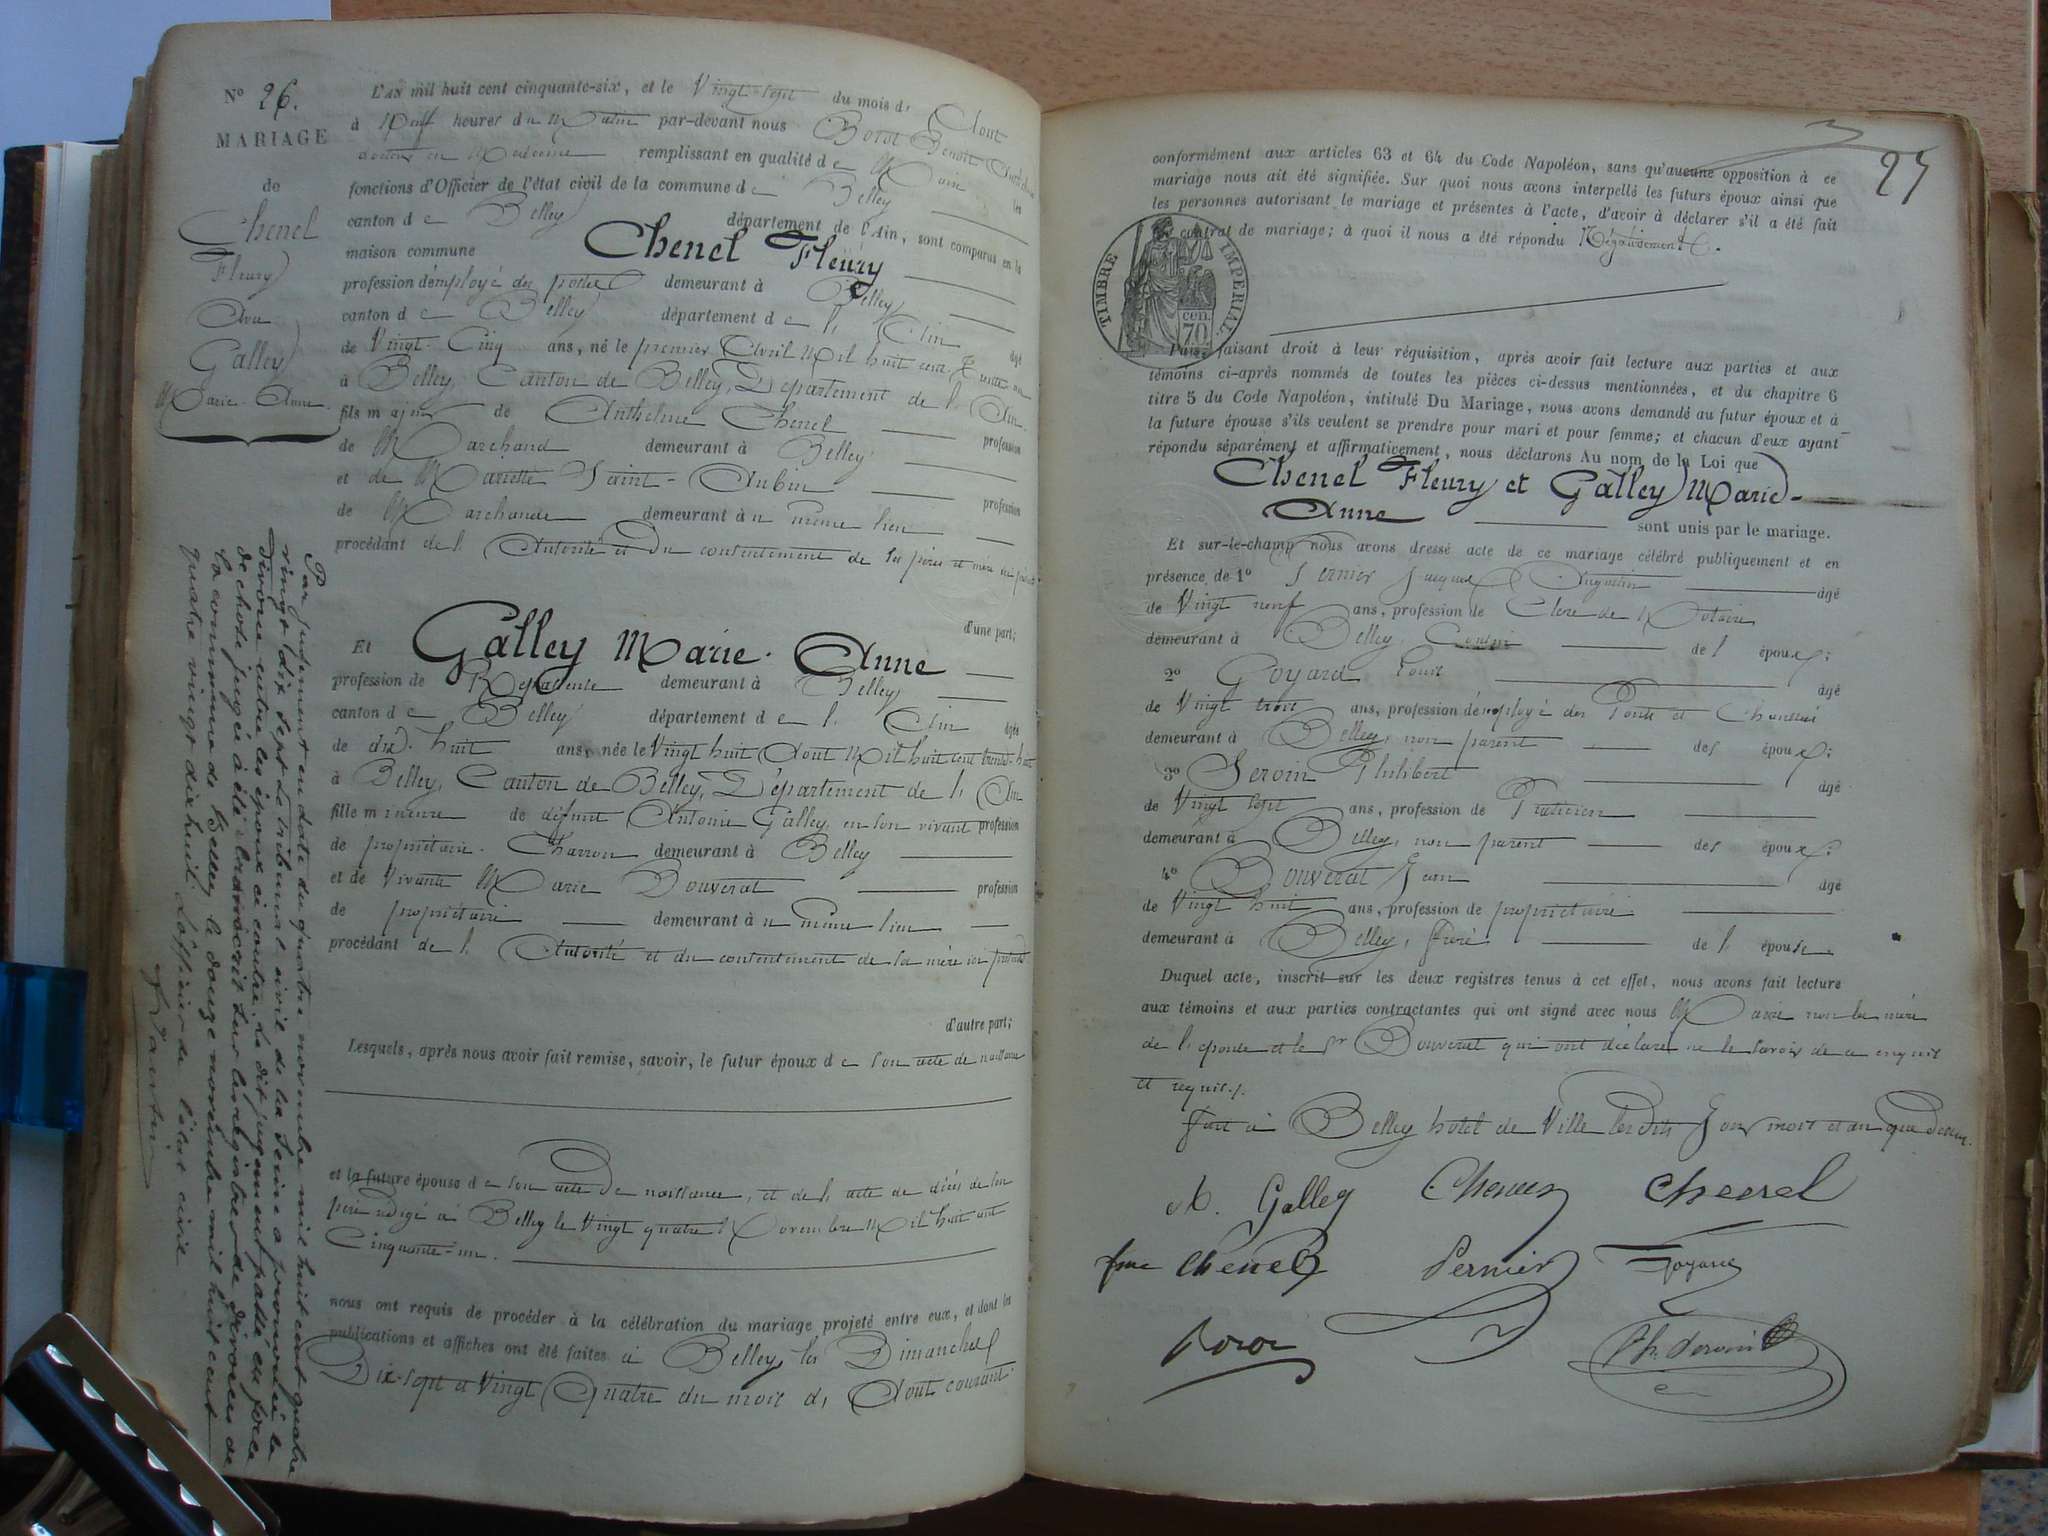 N° 26.
MARIAGE
de
Chenel
Fleury
Avec
Galley
Marie-Anne.
L'an mil huit cent cinquante-six, et le Vingt-sept du mois d' Aout
à Neuf heures du Matin par-devant nous Benoit
docteur en Médecine remplissant en qualité de Maire les
fonctions d'Officier de l'état civil de la commune de Belley
canton de Belley département de l'Ain, sont comparus en la
maison commune Chenel Fleury
profession d'employé des postes demeurant à Belley
canton de Belley département de l' Ain âgé
de Vingt-Cinq ans, né le premier Avril Mil huit cent Trente un
à Belley, Canton de Belley, Département de l' Ain.
fils majeur de Anthelme Chenel profession
de Marchand demeurant à Belley
et de Mariette Saint-Aubin profession
de Marchande demeurant au même lieu
procédant de l' Autorité et Du consentement de ses pères et mère ici présents
d'une part;
Et Galley Marie-Anne
profession de Repasseuse demeurant à Belley
canton de Belley département de l' Ain âgée
de dix-huit ans, née le Vingt huit Aout Mil huit cent trente-huit
à Belley, Canton de Belley, Département de l' Ain
fille mineure de défunt Antoine Galley, en son vivant profession
de propriétaire Charron demeurant à Belley
et de Vivante Marie Bouverat profession
de propriétaire demeurant au même lieu
procédant de l' Autorité et du consentement de sa mère ici présente
d'autre part;
Lesquels, après nous avoir fait remise, savoir, le futur époux de son acte de naissance
et la future épouse de son acte De naissance, et de l' acte de décès de son
père rédigé à Belley le Vingt quatre Novembre Mil huit cent
Cinquante-un.
nous ont requis de procéder à la célébration du mariage projeté entre eux, et dont les
publications et affiches ont été faites à Belley, les Dimanches
Dix-sept et Vingt Quatre du mois d' Aout courant
Par jugement en date du quatre novembre mil huit cent quatre
vingt dix sept le tribunal civil de la Seine a prononcé le
divorce entre les époux ci contre. Le dit jugement passé en force
de chose jugée a été transcrit sur les registres de divorces de
la commune de Belley le douze novembre mil huit cent
quatre vingt dix huit. L'officier de l'état civil
27
conformément aux articles 63 et 64 du Code Napoléon, sans qu'aucune opposition à ce
mariage nous ait été signifiée. Sur quoi nous avons interpellé les futurs époux ainsi que
les personnes autorisant le mariage et présentes à l'acte, d'avoir à déclarer s'il a été fait
contrat de mariage; à quoi il nous a été répondu Négativement.
TIMBRE IMPERIAL.
cen.
70
Puis, faisant droit à leur réquisition, après avoir fait lecture aux parties et aux
témoins ci-après nommés de toutes les pièces ci-dessus mentionnées, et du chapitre 6
titre 5 du Code Napoléon, intitulé Du Mariage, nous avons demandé au futur époux et à
la future épouse s'ils veulent se prendre pour mari et pour femme; et chacun d'eux ayant
répondu séparément et affirmativement, nous déclarons Au nom de la Loi que
Chenel Fleury et Galley Marie-
Anne sont unis par le mariage.
Et sur-le-champ nous avons dressé acte de ce mariage célébré publiquement et en
présence de 1° Pernier Jacques Augustin âgé
de Vingt neuf ans, profession de Clerc de Notaire
demeurant à Belley, Cousin de l' époux;
2° Goyard Louis âgé
de Vingt trois ans, profession d'employé des Ponts et Chaussées
demeurant à Belley, non parent des époux;
3° Servin Philibert âgé
de Vingt sept ans, profession de Praticien
demeurant à Belley, non parent des époux;
4° Bouverat Jean âgé
de Vingt huit ans, profession de propriétaire
demeurant à Belley, frère de l' épouse.
Duquel acte, inscrit sur les deux registres tenus à cet effet, nous avons fait lecture
aux témoins et aux parties contractantes qui ont signé avec nous Maire non la mère
de l'épouse et le Sr Bouverat qui ont déclaré ne le savoir de ce enquis
et requis./.
Fait à Belley hotel de Ville lesdits Jour mois et an que Dessus.
M. Galley Chenel Chenel
fme Chenel Pernier Goyard
Ph. Servin